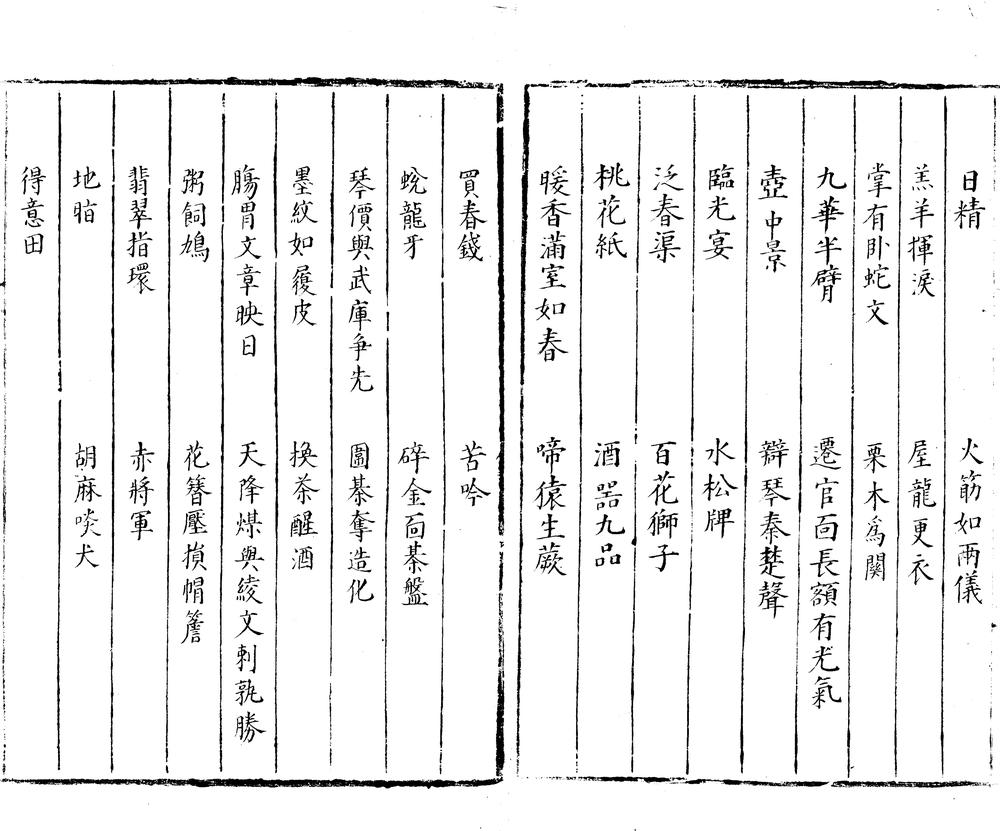 日精 火筋如兩儀
羔羊揮淚 屋龍更衣
掌有卧蛇文 栗木為關
九華半臂 遷官面長額有光氣
壺中景 辯琴秦楚聲
臨光宴 水松牌
泛春渠 百花獅子
桃花紙 酒器九品
暖香滿室如春 啼猿生蕨
買春錢 苦吟
蛻龍牙 碎金面棊盤
琴價與武庫争先 圍棊奪造化
墨紋如履皮 換茶醒酒
腸胃文章映日 天降煤與綾文刺孰勝
粥飼鳩 花簪壓損帽簷
翡翠指環 赤將軍
地脂 胡麻啖犬
得意田